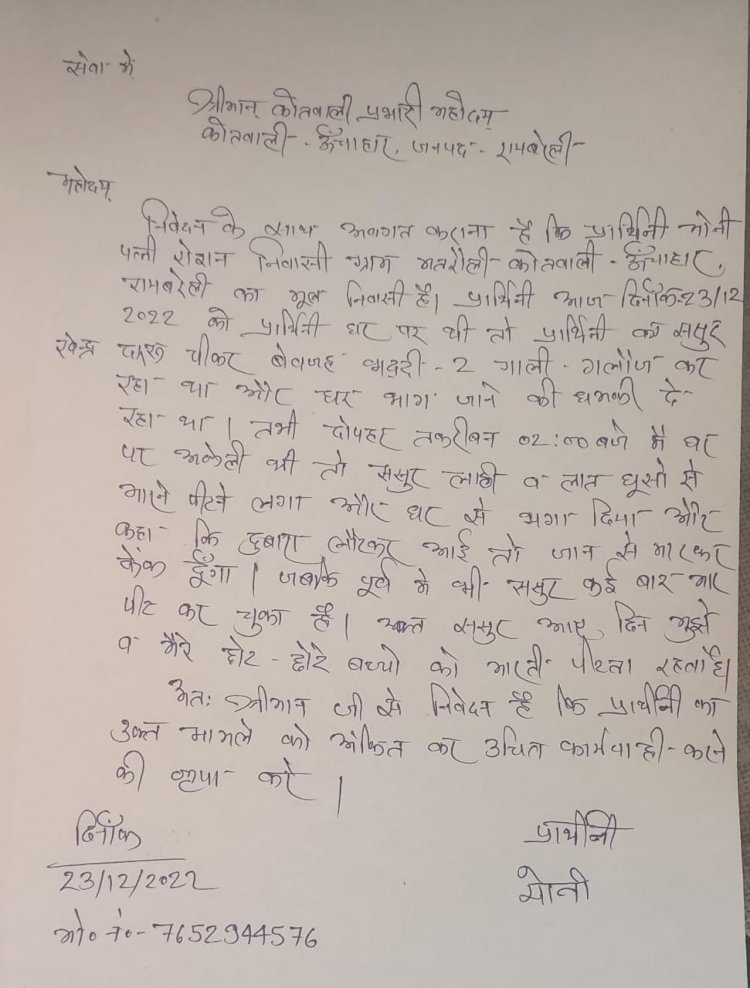 सेवा मे
श्रीमान् कोतवाली प्रभारी महोदय्
कोतवाली - ऊँचाहार, जनपद - रायबरेली -
महोदय्
निवेदन के साथ अवगत कराना है कि प्रार्थिनी मोनी
पत्नी रोशन निवासी ग्राम मतरौली - कोतवाली - ऊँचाहार,
रायबरेली का मूल निवासी है। प्रार्थिनी आज दिनाँक-23/12
2022 को प्रार्थिनी घर पर थी तो प्रार्थिनी का ससुर
दारू पीकर बेवजह भद्दी - 2 गाली - गलौज कर
रहा था और घर भाग जाने की धमकी दे-
रहा था। तभी दोपहर तकरीबन 02:00 बजे मै घर
पर अकेली थी तो ससुर लाठी व लात घूसो से
मारने पीटने लगा और घर से भगा दिया और
कहा कि दुबारा लौटकर आई तो जान से मारकर
फेंक दूँगा। जबकि पूर्व मे भी ससुर कई बार मार
पीट कर चुका है। उक्त ससुर आए दिन मुझे
व मेरे छोटे - छोटे बच्चो को मारता पीटता रहता है।
अतः श्रीमान जी से निवेदन है कि प्रार्थीनी का
उक्त मामले को अंकित कर उचित कार्यवाही - करने
की कृपा करे।
दिनाँक
प्रार्थीनी
23/12/2022
मोनी
मो० नं०- 7652944576